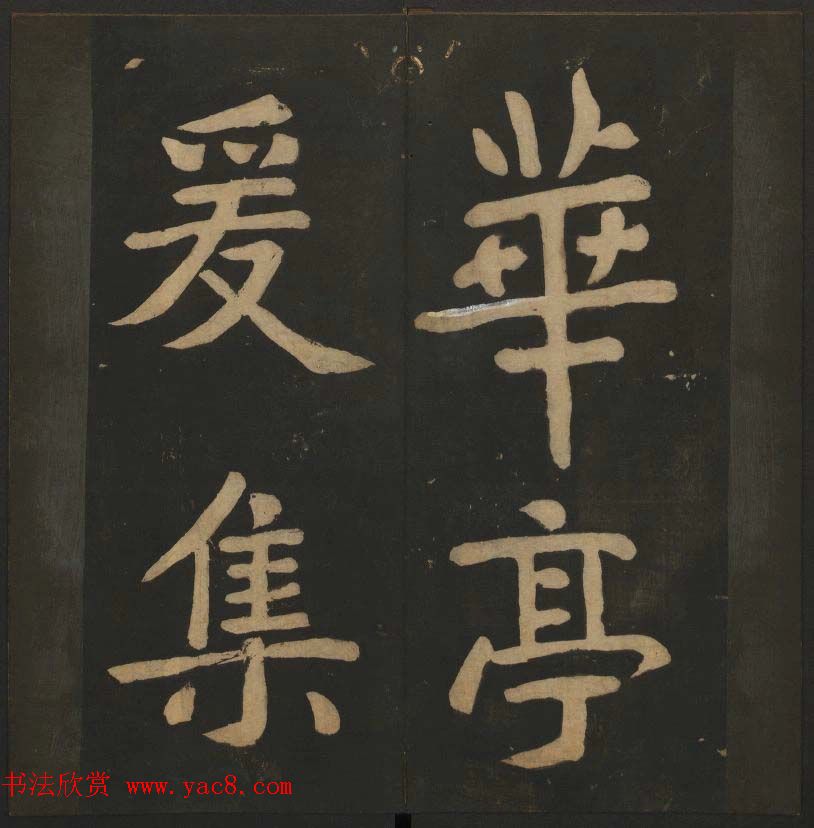 華亭
爰集
书法欣赏 www.yac8.com